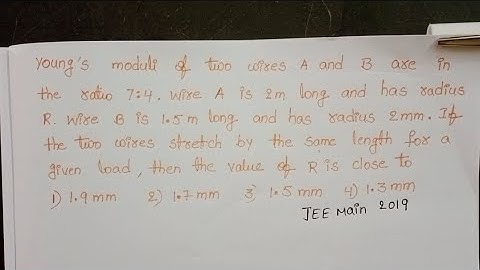 Young's moduli of two wires A and B are in
the ratio 7:4. Wire A is 2m long and has radius
R. Wire B is 1.5m long and has radius 2mm. If
the two wires stretch by the same length for a
given load, then the value of R is close to
1) 1.9 mm 2) 1.7 mm 3) 1.5 mm 4) 1.3 mm
JEE Main 2019